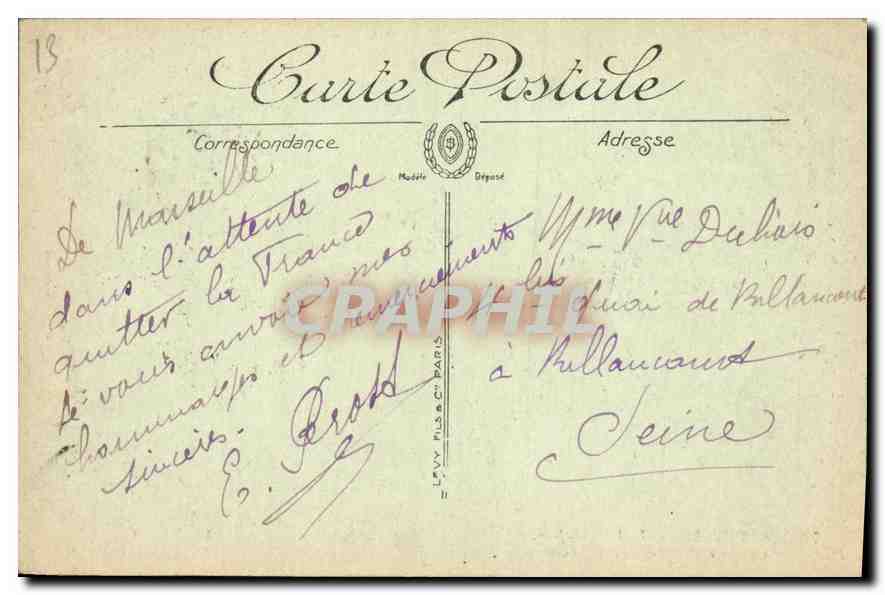 13
Carte Postale
Correspondance
Adresse
Modèle Déposé
De Marseille
dans l'attente de
quitter la France
je vous envoie mes
hommages et remerciements
sincères.
E. Perott
Mme Vve Dubois
4 bis Quai de Billancourt
à Billancourt
Seine
LEVY FILS & Cie PARIS
CPAPHIL